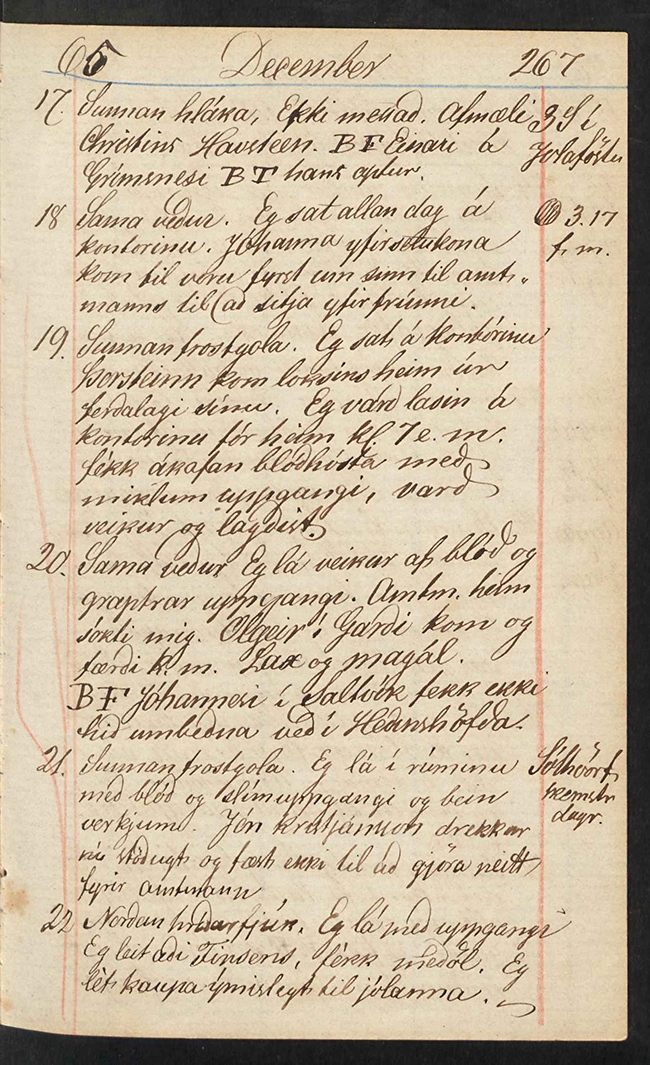 65 December 267
17. Sunnan hláka, Ekki messad. Afmæli 3 S í
Christins Havsteen. BF Einari á Jolaföstu
Grímsnesi BT hans aptur.
18 Sama vedur. Eg sat allan dag á 3.17
kontorinu. Jóhanna yfirsetukona f. m.
kom til voru fyrst um sinn til amt„
manns til ad sitja yfir frúnni.
19. Sunnan frostgola. Eg sat á Kontórinu
Þorsteinn kom loksins heim úr
ferdalagi sínu. Eg vard lasin á
kontorinu fór heim Kl. 7 e. m.
fékk ákafan blódhósta með
miklum uppgangi, varð
veikur og lagdist.
20. Sama vedur Eg lá veikur af blód og
graptrar uppgangi. Amtm. heim
sókti mig. Olgeir í Gardi kom og
færdi k. m. Lax og magál.
BF Jóhannesi í Saltvík fekk ekki
hid umbedna ved í Hedinshöfda.
21. Sunnan frostgola. Eg lá í rúminu Sólhvörf
med blód og slímuppgangi og bein skemstr
verkjum. Jón Kristjánsson drekkur dagr.
nú stödugt og fæst ekki til ad gjöra neitt
fyrir amtmann
22 Nordan hrídarfjúk. Eg lá med uppgangi
Eg leitadi Finsens, fékk medöl. Eg
lét kaupa ýmislegt til jólanna.